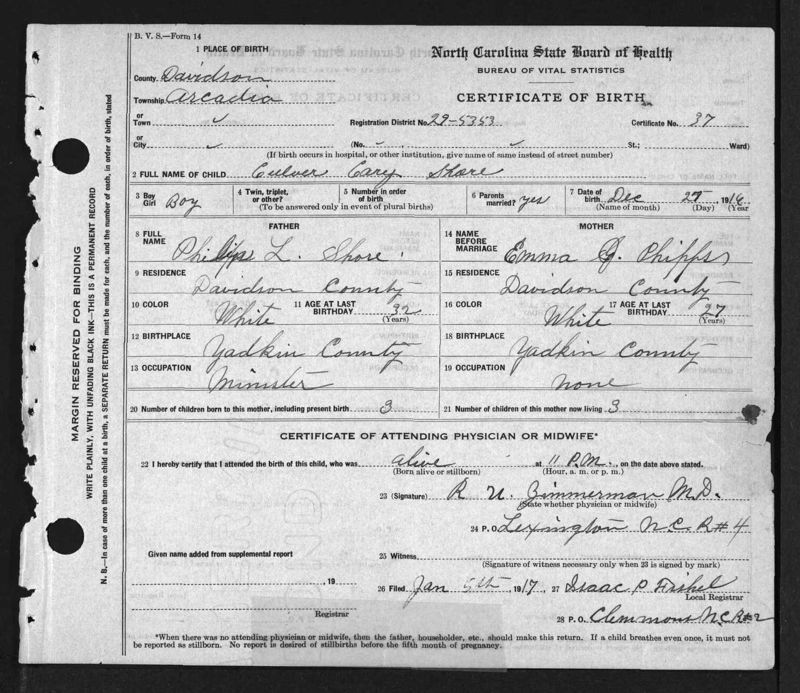 B. V. S.—Form 14
1 PLACE OF BIRTH
North Carolina State Board of Health
BUREAU OF VITAL STATISTICS
CERTIFICATE OF BIRTH
County Davidson
Township Arcadia
or Town
Registration District No. 29-5353 Certificate No. 37
or City (No. St.; Ward)
(If birth occurs in hospital, or other institution, give name of same instead of street number)
2 FULL NAME OF CHILD Culver Cary Shore
3 Boy Girl Boy 4 Twin, triplet, or other? 5 Number in order of birth 6 Parents married? yes 7 Date of birth Dec 1916
(To be answered only in event of plural births) (Name of month) (Day) (Year
FATHER
8 FULL NAME L. Shore
9 RESIDENCE Davidson County
10 COLOR White 11 AGE AT LAST BIRTHDAY 32 (Years)
12 BIRTHPLACE Yadkin County
13 OCCUPATION Minister
20 Number of children born to this mother, including present birth 3
MOTHER
14 NAME BEFORE MARRIAGE Emma Phipps
15 RESIDENCE Davidson County
16 COLOR White 17 AGE AT LAST BIRTHDAY 27 (Years)
18 BIRTHPLACE Yadkin County
19 OCCUPATION None
21 Number of children of this mother now living 3
CERTIFICATE OF ATTENDING PHYSICIAN OR MIDWIFE*
22 I hereby certify that I attended the birth of this child, who was alive at 11 P.M., on the date above stated.
(Born alive or stillborn) (Hour, a. m. or p. m.)
23 (Signature) R U. Zimmerman M.D.
(State whether physician or midwife)
24 P. O. Lexington N.C. R#4
Given name added from supplemental report
25 Witness
(Signature of witness necessary only when 23 is signed by mark)
, 19
26 Filed Jan 5th 1917, 27 Isaac P
Local Registrar
Registrar
28 P. O. Clemmons N.C. R#2
*When there was no attending physician or midwife, then the father, householder, etc., should make this return. If a child breathes even once, it must not
be reported as stillborn. No report is desired of stillbirths before the fifth month of pregnancy.
MARGIN RESERVED FOR BINDING
WRITE PLAINLY, WITH UNFADING BLACK INK—THIS IS A PERMANENT RECORD
N. B.—In case of more than one child at a birth, a SEPARATE RETURN must be made for each, and the number of each, in order of birth, stated